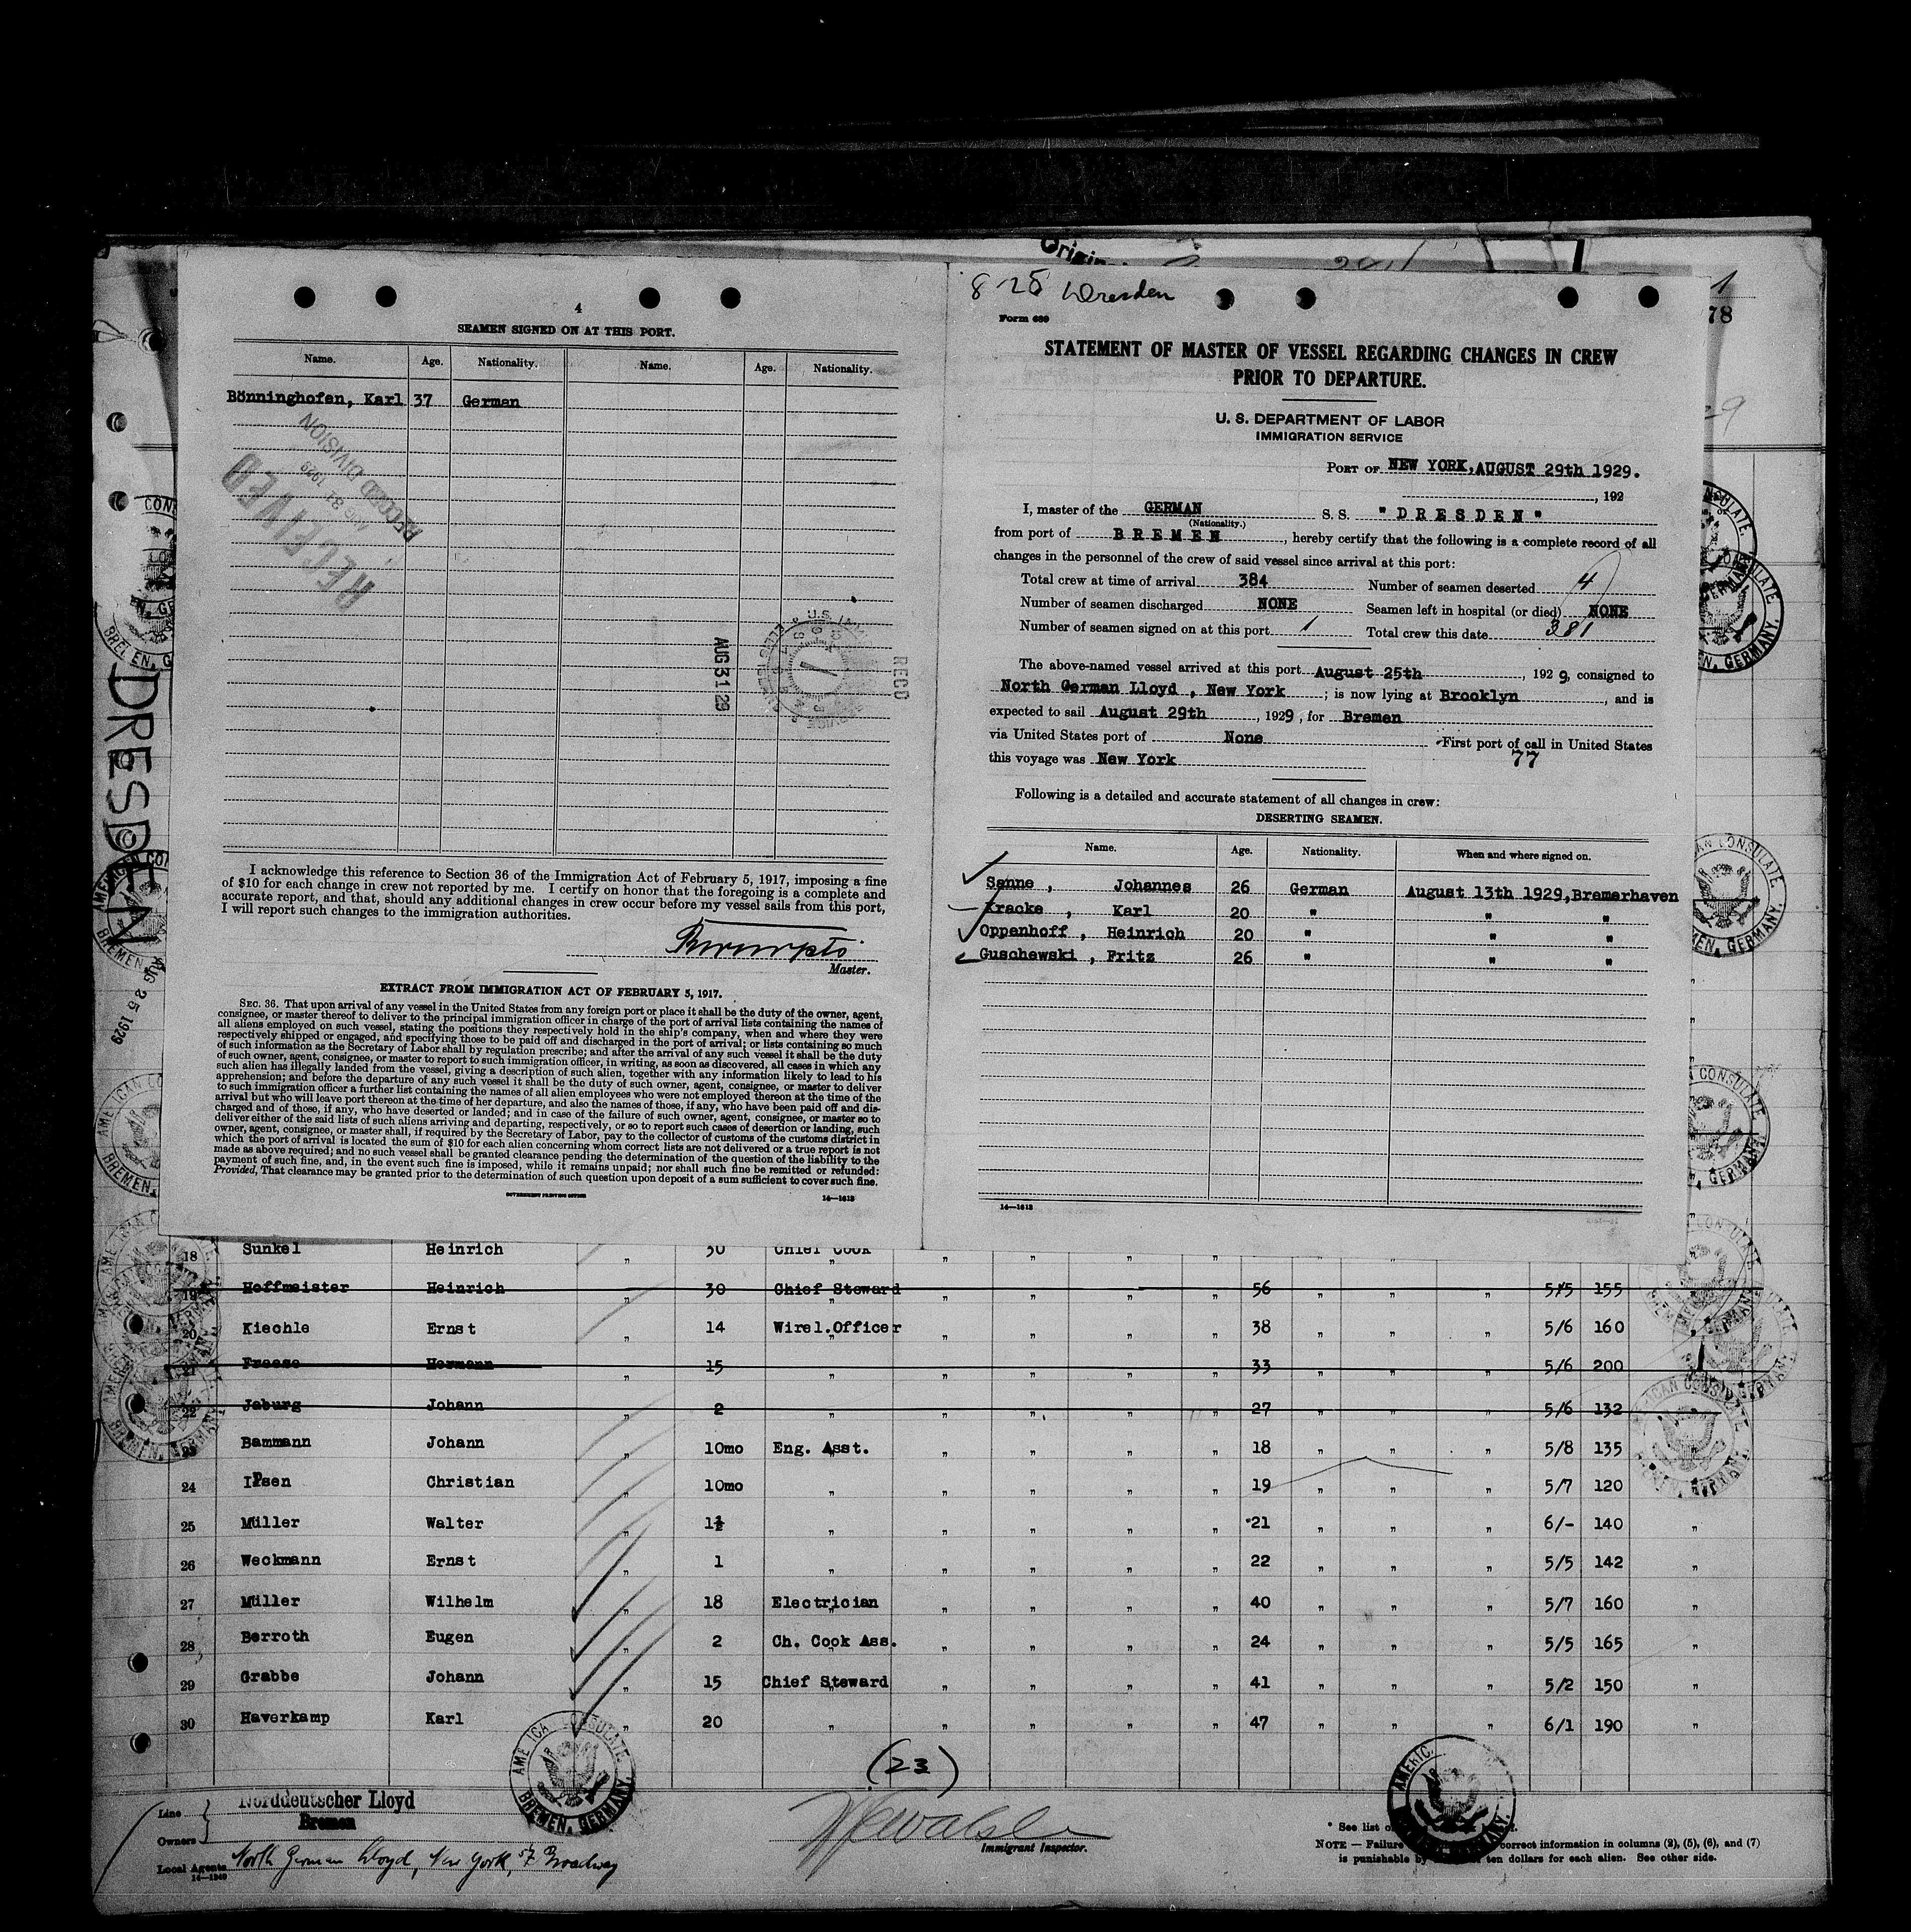 8-25 Dresden
4
SEAMEN SIGNED ON AT THIS PORT.
Name. Age. Nationality. Name. Age. Nationality.
Bönninghofen, Karl 37 German
RECEIVED
AUG 31 1929
RECORD DIVISION
AUG 31 29
RECD
I acknowledge this reference to Section 36 of the Immigration Act of February 5, 1917, imposing a fine
of $10 for each change in crew not reported by me. I certify on honor that the foregoing is a complete and
accurate report, and that, should any additional changes in crew occur before my vessel sails from this port,
I will report such changes to the immigration authorities.
Master.
EXTRACT FROM IMMIGRATION ACT OF FEBRUARY 5, 1917.
SEC. 36. That upon arrival of any vessel in the United States from any foreign port or place it shall be the duty of the owner, agent,
consignee, or master thereof to deliver to the principal immigration officer in charge of the port of arrival lists containing the names of
all aliens employed on such vessel, stating the positions they respectively hold in the ship's company, when and where they were
respectively shipped or engaged, and specifying those to be paid off and discharged in the port of arrival; or lists containing so much
of such information as the Secretary of Labor shall by regulation prescribe; and after the arrival of any such vessel it shall be the duty
of such owner, agent, consignee, or master to report to such immigration officer, in writing, as soon as discovered, all cases in which any
such alien has illegally landed from the vessel, giving a description of such alien, together with any information likely to lead to his
apprehension; and before the departure of any such vessel it shall be the duty of such owner, agent, consignee, or master to deliver
to such immigration officer a further list containing the names of all alien employees who were not employed thereon at the time of the
arrival but who will leave port thereon at the time of her departure, and also the names of those, if any, who have been paid off and dis-
charged and of those, if any, who have deserted or landed; and in case of the failure of such owner, agent, consignee, or master so to
deliver either of the said lists of such aliens arriving and departing, respectively, or so to report such cases of desertion or landing, such
owner, agent, consignee, or master shall, if required by the Secretary of Labor, pay to the collector of customs of the customs district in
which the port of arrival is located the sum of $10 for each alien concerning whom correct lists are not delivered or a true report is not
made as above required; and no such vessel shall be granted clearance pending the determination of the question of the liability to the
payment of such fine, and, in the event such fine is imposed, while it remains unpaid; nor shall such fine be remitted or refunded:
Provided, That clearance may be granted prior to the determination of such question upon deposit of a sum sufficient to cover such fine.
GOVERNMENT PRINTING OFFICE 14—1613
Form 689
STATEMENT OF MASTER OF VESSEL REGARDING CHANGES IN CREW
PRIOR TO DEPARTURE.
U. S. DEPARTMENT OF LABOR
IMMIGRATION SERVICE
PORT OF NEW YORK, AUGUST 29th 1929.
, 192
I, master of the GERMAN S. S. "DRESDEN"
(Nationality.)
from port of BREMEN, hereby certify that the following is a complete record of all
changes in the personnel of the crew of said vessel since arrival at this port:
Total crew at time of arrival 384 Number of seamen deserted 4
Number of seamen discharged NONE Seamen left in hospital (or died) NONE
Number of seamen signed on at this port 1 Total crew this date 381
The above-named vessel arrived at this port August 25th, 1929, consigned to
North German Lloyd, New York; is now lying at Brooklyn, and is
expected to sail August 29th, 1929, for Bremen
via United States port of None First port of call in United States
this voyage was New York 77
Following is a detailed and accurate statement of all changes in crew:
DESERTING SEAMEN.
Name. Age. Nationality. When and where signed on.
Sanne, Johannes 26 German August 13th 1929, Bremerhaven
Kracke, Karl 20 " " "
Oppenhoff, Heinrich 20 " " "
Guschewski, Fritz 26 " " "
14—1613
DRESDEN
AUG 25 1929
78
18 Sunkel Heinrich " 30 Chief Cook " " " " " " "
19 Hoffmeister Heinrich " 30 Chief Steward " " " " 56 " " " 5/5 155
20 Kiechle Ernst " 14 Wirel.Officer " " " " 38 " " " 5/6 160
21 Freese Hermann " 15 " " " " " 33 " " " 5/6 200
22 Jaburg Johann " 2 " " " " " 27 " " " 5/6 132
23 Bammann Johann " 10mo Eng. Asst. " " " " 18 " " " 5/8 135
24 Ipsen Christian " 10mo " " " " " 19 " " " 5/7 120
25 Müller Walter " 1½ " " " " " 21 " " " 6/- 140 "
26 Weckmann Ernst " 1 " " " " " 22 " " " 5/5 142 "
27 Müller Wilhelm " 18 Electrician " " " " 40 " " " 5/7 160 "
28 Berroth Eugen " 2 Ch. Cook Ass. " " " " 24 " " " 5/5 165 "
29 Grabbe Johann " 15 Chief Steward " " " " 41 " " " 5/2 150 "
30 Haverkamp Karl " 20 " " " " " 47 " " " 6/1 190 "
(23)
AMERICAN CONSULATE
BREMEN, GERMANY.
Line
Owners
Norddeutscher Lloyd
Bremen
Local Agents North German Lloyd, New York, 57 Broadway
14—1240
Immigrant Inspector.
* See list o
NOTE — Failure correct information in columns (2), (5), (6), and (7)
is punishable by ten dollars for each alien. See other side.